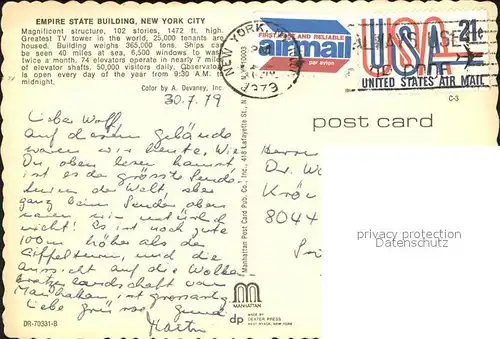 EMPIRE STATE BUILDING, NEW YORK CITY
Magnificent structure, 102 stories, 1472 ft. high.
Greatest TV tower in the world, 25,000 tenants are
housed. Building weighs 365,000 tons. Ships can
be seen 40 miles at sea, 6,500 windows to wash
twice a month. 74 elevators operate in nearly 7 miles
of elevator shafts, 50,000 visitors daily. Observatory
is open every day of the year from 9:30 A.M. to
midnight.
Color by A. Devaney, Inc.
NEW YORK,
1979
FIRST CLASS AND RELIABLE
airmail
par avion
ALWAYS USE
USA 21¢
UNITED STATES AIR MAIL
C-3
post card
30.7.79
Liebe Wolf
auf diesem Gebäude
waren wir heute. Wie
Du oben lesen kannst
ist es der grösste Sende-
turm der Welt, aber
ganz beim Sender oben
waren wir natürlich
nicht! Es ist noch gute
100m höher als der
Eiffelturm, und die
Aussicht auf die Wolken-
kratzerlandschaft von
Manhattan ist grossartig
Liebe Grüsse
Martin
Herrn
Dr. Wo
8044
Manhattan Post Card Pub. Co., Inc., 418 Lafayette St., N.Y. 10003
MANHATTAN
dp
MADE BY
DEXTER PRESS
WEST NYACK, NEW YORK
DR-70331-B
privacy protection
Datenschutz